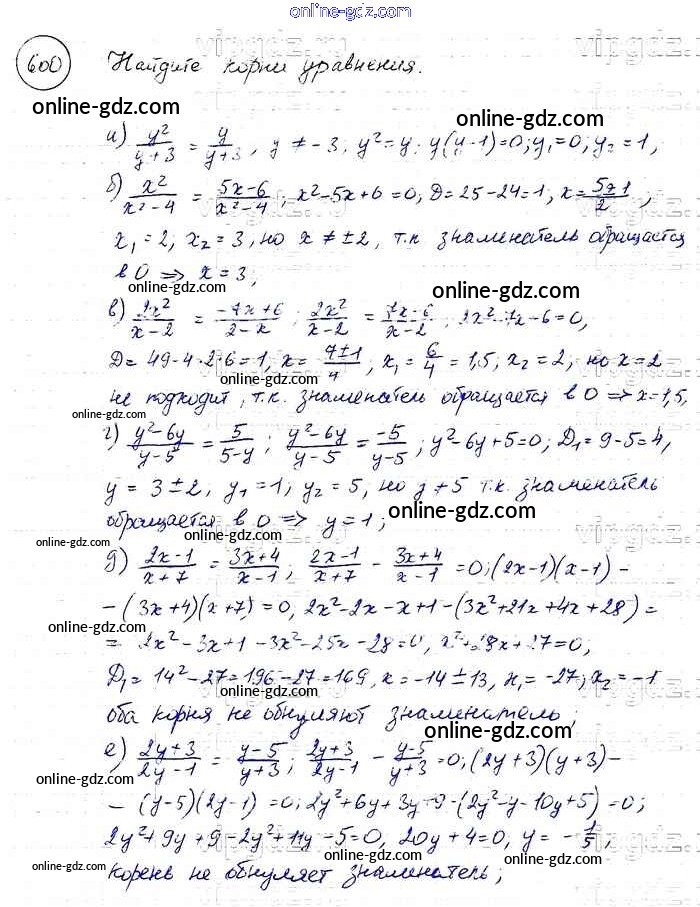 online-gdz.com
online-gdz.com
600 Найдите корни уравнения.
online-gdz.com online-gdz.com
а) y²/(y+3) = y/(y+3), y ≠ -3; y² = y; y(y-1)=0; y₁=0; y₂=1,
б) x²/(x²-4) = (5x-6)/(x²-4); x²-5x+6=0, D=25-24=1, x=(5±1)/2,
online-gdz.com
x₁=2, x₂=3, но x ≠ ±2, т.к знаменатель обращается
в 0 => x=3;
online-gdz.com
в) 2x²/(x-2) = (-7x+6)/(2-x); 2x²/(x-2) = (7x-6)/(x-2); -6=0,
D=49-4·2·6=1, x=(7±1)/4, x₁=6/4=1,5, x₂=2, но x=2
online-gdz.com
не подходит, т.к. знаменатель обращается в 0 => x=1,5,
online-gdz.com
г) (y²-6y)/(y-5) = 5/(5-y); (y²-6y)/(y-5) = -5/(y-5); y²-6y+5=0; D₁=9-5=4,
y=3±2, y₁=1; y₂=5, но y ≠ 5 т.к. знаменатель
online-gdz.com
обращается в 0 => y=1;
online-gdz.com
online-gdz.com
д) (2x-1)/(x+7) = (3x+4)/(x-1); (2x-1)/(x+7) - (3x+4)/(x-1) = 0; (2x-1)(x-1) -
- (3x+4)(x+7)=0, 2x²-2x-x+1-(3x²+21x+4x+28) =
online-gdz.com
= 2x²-3x+1-3x²-25x-28=0, x²+28x+27=0;
D₁=14²-27=196-27=169, x=-14±13, x₁=-27; x₂=-1
online-gdz.com
оба корня не обнуляют знаменатель;
online-gdz.com
е) (2y+3)/(2y-1) = (y-5)/(y+3); (2y+3)/(2y-1) - (y-5)/(y+3) = 0, (2y+3)(y+3)-
online-gdz.com
- (y-5)(2y-1)=0; 2y²+6y+3y+9-(2y²-y-10y+5)=0;
2y²+9y+9-2y²+11y-5=0, 20y+4=0, y=-1/5,
online-gdz.com
online-gdz.com
корень не обнуляет знаменатель;